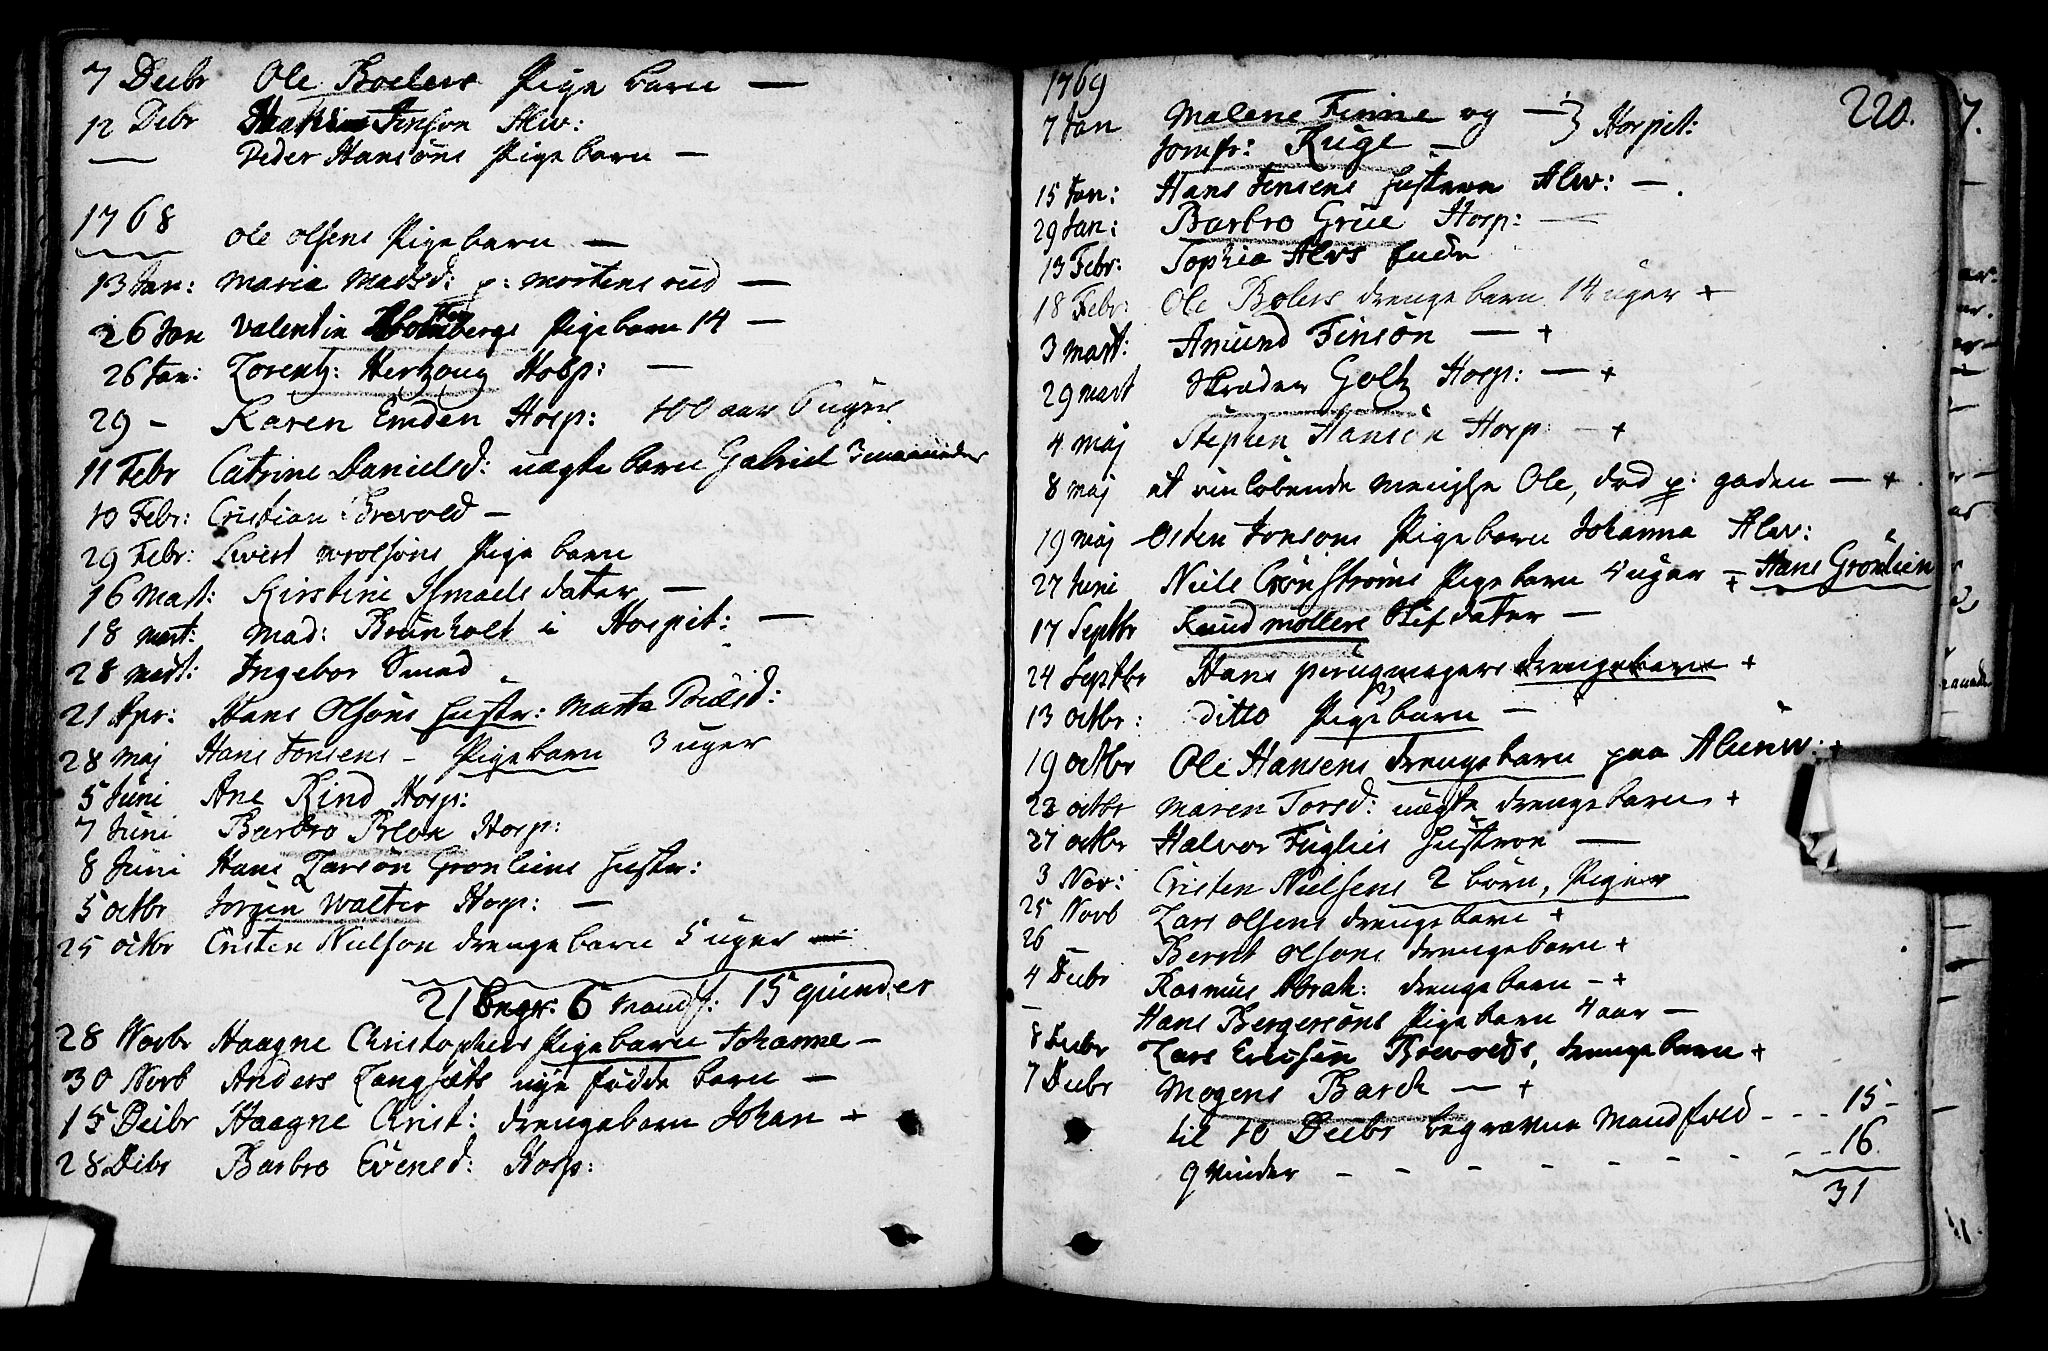 7 Decbr Ole Boelers Pige barn —
12 Debr Jenson Alw:
— Peder Hansøns Pigebarn —
1768
Ole Olsens Pigebarn —
13 Jan: Maria Madsd: p: Mortensrud —
26 Jan Valentin Pigebarn 14 —
26 Jan: Lorentz: Hertzoug Hosp: —
29 - Karen Emden Hosp: 100 aar 6 uger
11 Febr Catrine Danielsd: uægte barn Gabriel 3 maaneder
10 Febr: Cristian Brevold —
29 Febr: Sivert wrolsøns Pige barn
16 Mart: Kirstine Ismaels dater —
18 Mart: Mad: Brunholt i Hospit: —
28 Mart: Ingebor Smed
21 Apr: Hans Olsøns Hustr: Marta
28 Maj Hans Jonsens - Pigebarn 3 uger
5 Juni Ane Kind Hosp:
7 Juni Barbro Bloe Hosp:
8 Juni Hans Larsøn Grønliens Hustr:
5 octbr Jørgen Walter Hosp: —
25 octbr Cristen Nielson drengebarn 5 uger
21 Begr: 6 Mandf: 15 qvinder
28 Novbr Haagne Christophers Pigebarn Johanne —
30 Novb Anders Langsæts nye fødde barn —
15 Decbr Haagne Christ: drengebarn Johan +
28 Debr Barbro Evensd: Hosp:
1769
220.
7 Jan Malene Finne og — } Hospit:
Jomfr: Ruge —
15 Jan: Hans Jensens Hustrue Alw: —.
29 Jan: Barbro Grüe Hosp: —
13 Febr: Sophia Alvs Enke
18 Febr: Ole Bolers drengebarn 14 uger +
3 Mart: Amund Finsøn — +
29 Mart Skræder Goltz Hosp: — +
4 Maj Stephen Hansøn Horp: — +
8 Maj et omløbende Menishe Ole, død p: gaden — +.
19 Maj Osten Jonsons Pigebarn Johanna Alw:
27 Juni Niels Crønstrøms Pigebarn 4 uger + Hans Grønlien
17 Septbr Knud møllers Stifdater —
24 Septbr Hans perugmagers drengebarn +
13 octbr: ditto Pigebarn —
19 octbr Ole Hansens drengebarn paa Alunw: +
22 octbr Maren Torsd: uægte drengebarn +
27 octbr Halvor Fuglies Hustroe —
3 Nov: Cristen Nielsens 2 børn, Piger
25 Novb Lars Olsens drengebarn +
26 Bernt Olsons drengebarn +
4 Decbr Rasmus Abrah: drengebarn — +
— Hans Bergersøns Pigebarn 4 aar —
8 Decbr Lars Ericsøn Brevolds, drengebarn +
7 Decbr Mogens Barck — +
til 10 Decbr begravne Mandfold - - - 15 -
qvinder - - - - - - - - - 16.
31